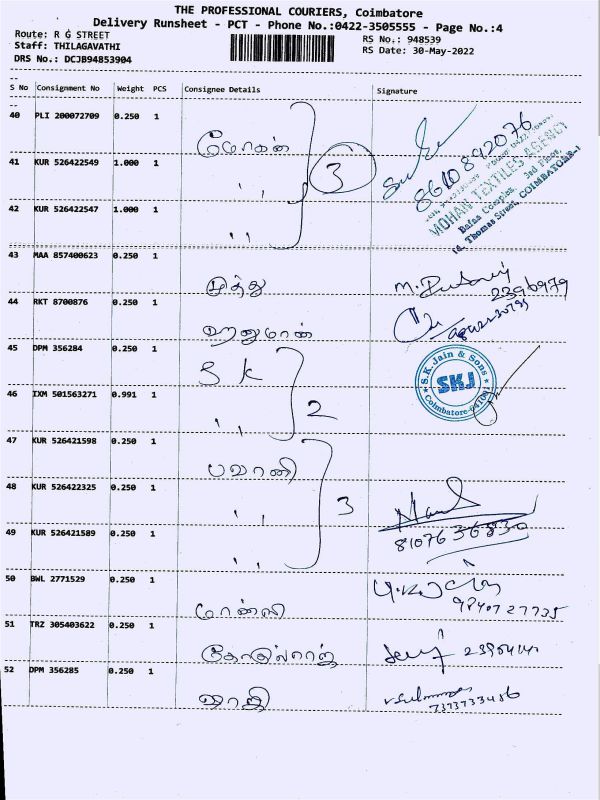 THE PROFESSIONAL COURIERS, Coimbatore
Delivery Runsheet - PCT - Phone No.:0422-3505555 - Page No.:4
Route: R G STREET
RS No.: 948539
Staff: THILAGAVATHI
RS Date: 30-May-2022
DRS No.: DCJB94853904
S No Consignment No Weight PCS Consignee Details Signature
40 PLI 200072709 0.250 1 மோகன்
41 KUR 526422549 1.000 1 ,, 3
8610892076
MOHAN TEXTILES AGENCY
Bafna Complex, 2nd Floor,
14, Thomas Street, COIMBATORE-1
42 KUR 526422547 1.000 1 ,,
43 MAA 857400623 0.250 1 முத்து 2396979
44 RKT 8700876 0.250 1 ஹனுமான்
45 DPM 356284 0.250 1 S K
S.K. Jain & Sons
SKJ
46 IXM 501563271 0.991 1 ,, 2
47 KUR 526421598 0.250 1 பவானி
48 KUR 526422325 0.250 1 ,, 3
49 KUR 526421589 0.250 1 ,, 8107636830
50 BWL 2771529 0.250 1 மான்ஸி 9840727735
51 TRZ 305403622 0.250 1 கோகுல்ராஜ்
52 DPM 356285 0.250 1 ஜாஜி 7373733486